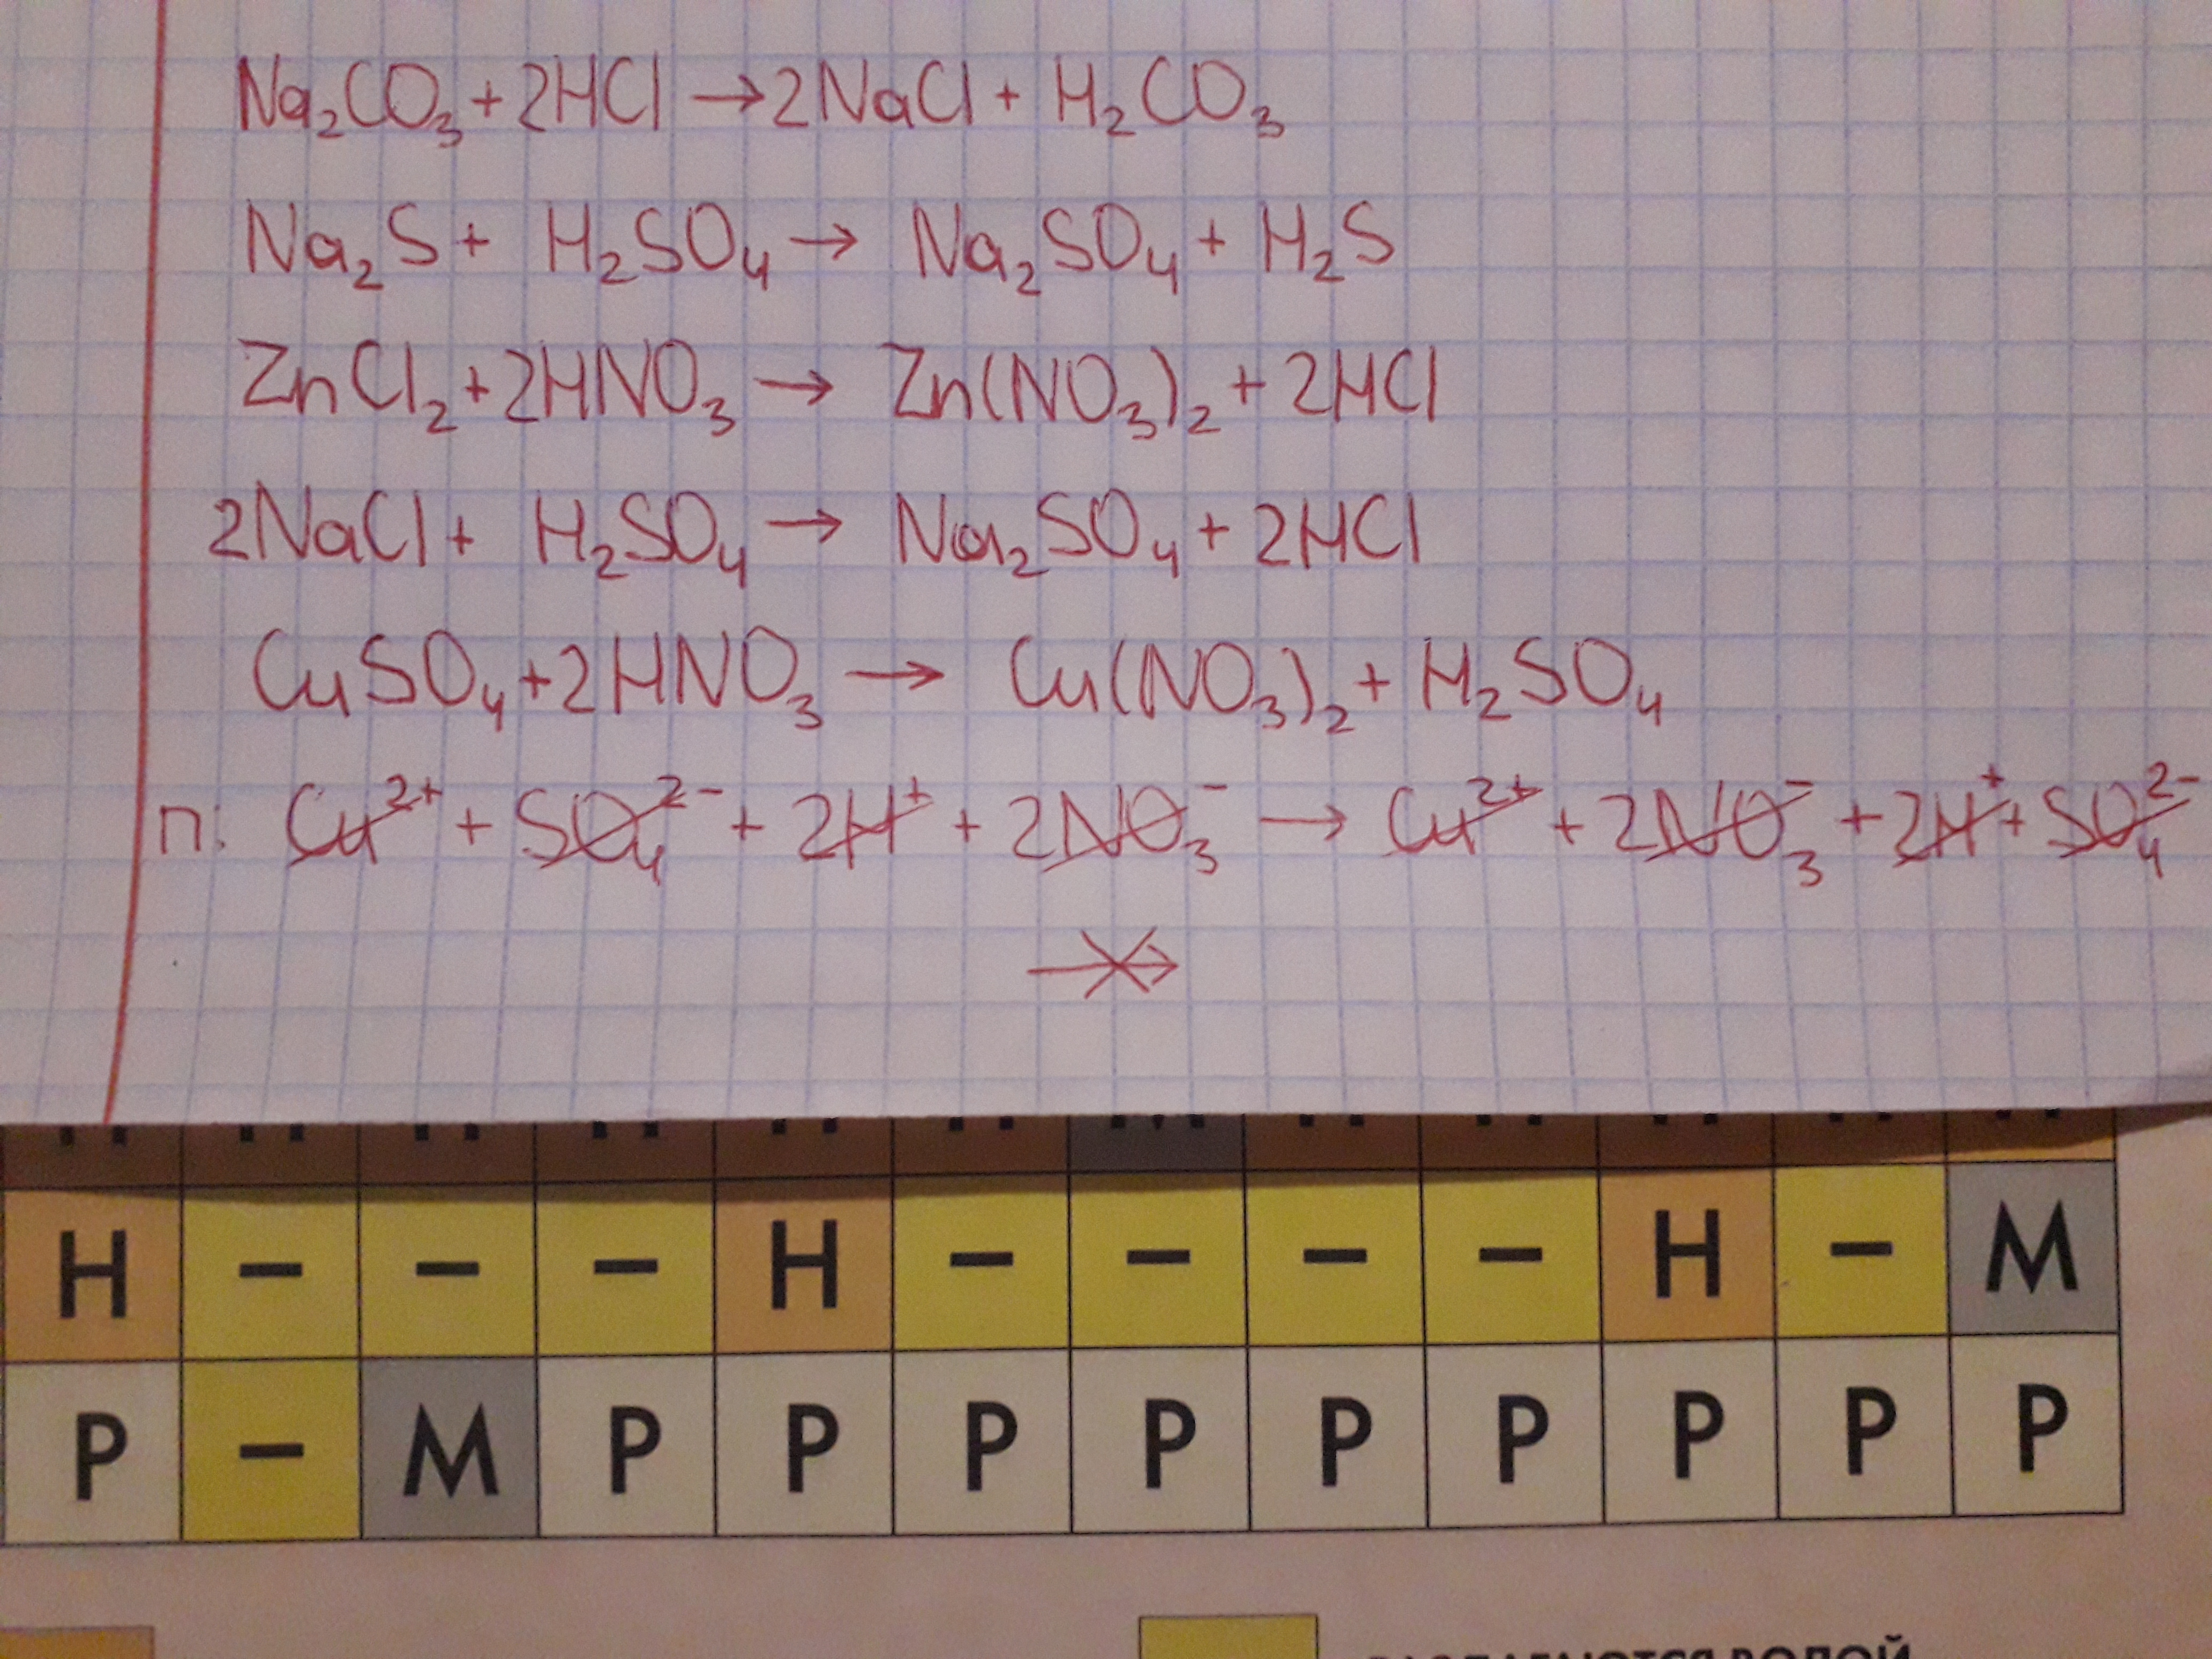 Na₂CO₃ + 2HCl → 2NaCl + H₂CO₃
Na₂S + H₂SO₄ → Na₂SO₄ + H₂S
ZnCl₂ + 2HNO₃ → Zn(NO₃)₂ + 2HCl
2NaCl + H₂SO₄ → Na₂SO₄ + 2HCl
CuSO₄ + 2HNO₃ → Cu(NO₃)₂ + H₂SO₄
п: Cu²⁺ + SO₄²⁻ + 2H⁺ + 2NO₃⁻ → Cu²⁺ + 2NO₃⁻ + 2H⁺ + SO₄²⁻
Н – – – Н – – – – Н – М
Р – М Р Р Р Р Р Р Р Р Р
ВОДОЙ